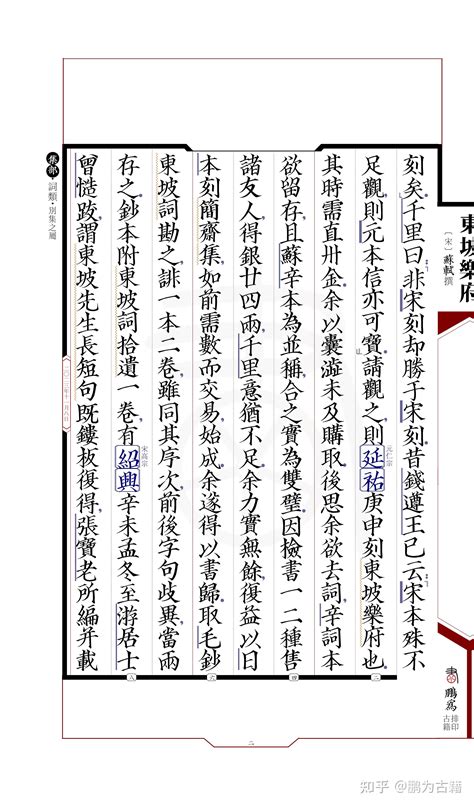 東坡樂府
〔宋〕蘇軾 撰
刻矣千里曰非宋刻却勝于宋刻昔錢遵王已云宋本殊不
足觀則元本信亦可寶請觀之則延祐庚申刻東坡樂府也
元仁宗
其時需直卅金余以囊澁未及購取後思余欲去詞辛詞本
欲留存且蘇辛本為並稱合之實為雙璧因撿書一二種售
諸友人得銀廿四兩千里意猶不足余力實無餘復益以日
本刻簡齋集如前需數而交易始成余遂得以書歸取毛鈔
東坡詞勘之誹一本二卷雖同其序次前後字句歧異當兩
存之鈔本附東坡詞拾遺一卷有紹興辛未孟冬至游居士
宋高宗
曾慥跋謂東坡先生長短句既鏤板復得張賓老所編并載
集部
詞類·別集之屬
二
鵬為
排印
古籍
知乎 @鹏为古籍